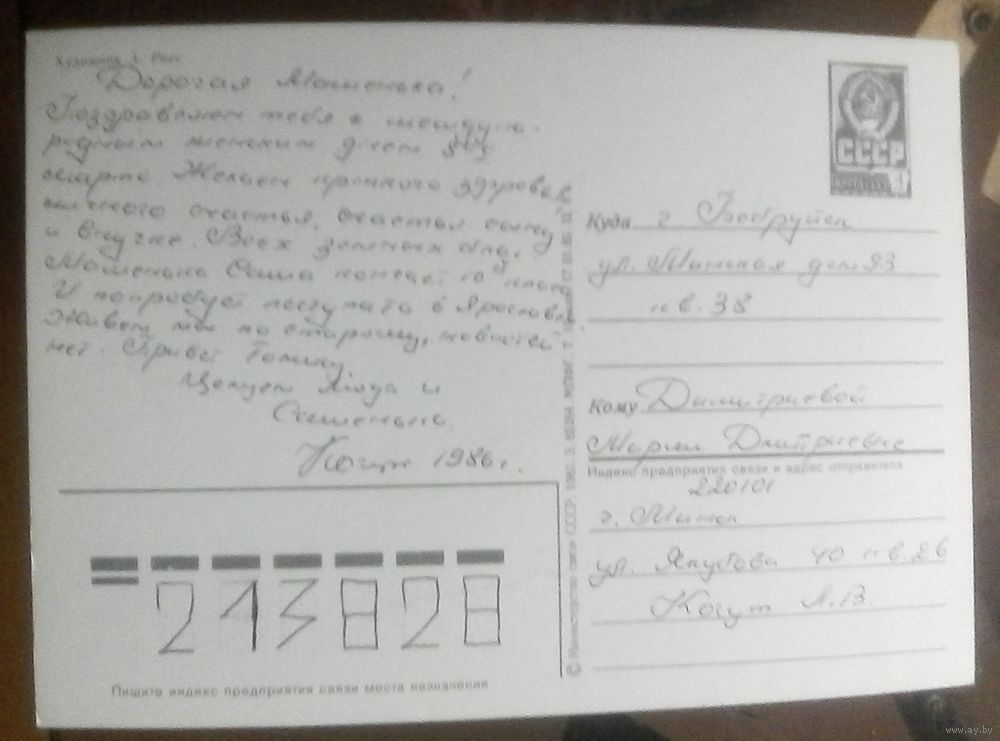 Художник А.
Дорогая Машенька!
Поздравляем тебя с
женским днем 8го
марта. Желаем крепкого здоровья
счастья, счастья сыну
и внучке. Всех земных благ.
Машенька Саша кончает 10
И попробует поступать в
Живем мы по старому, новостей
нет. Привет
Целуем и
Сашенька.
Когут 1986 г.
СССР
Куда г. Бобруйск
ул. Минская дом 93
кв. 38
Кому Димитриевой
Марии Дмитриевне
Индекс предприятия связи и адрес отправителя
220101
г. Минск
ул. Якубова 40 кв. 26
Когут Л.В.
213828
Пишите индекс предприятия связи места назначения
© Министерство связи СССР. 1985.
www.ay.by